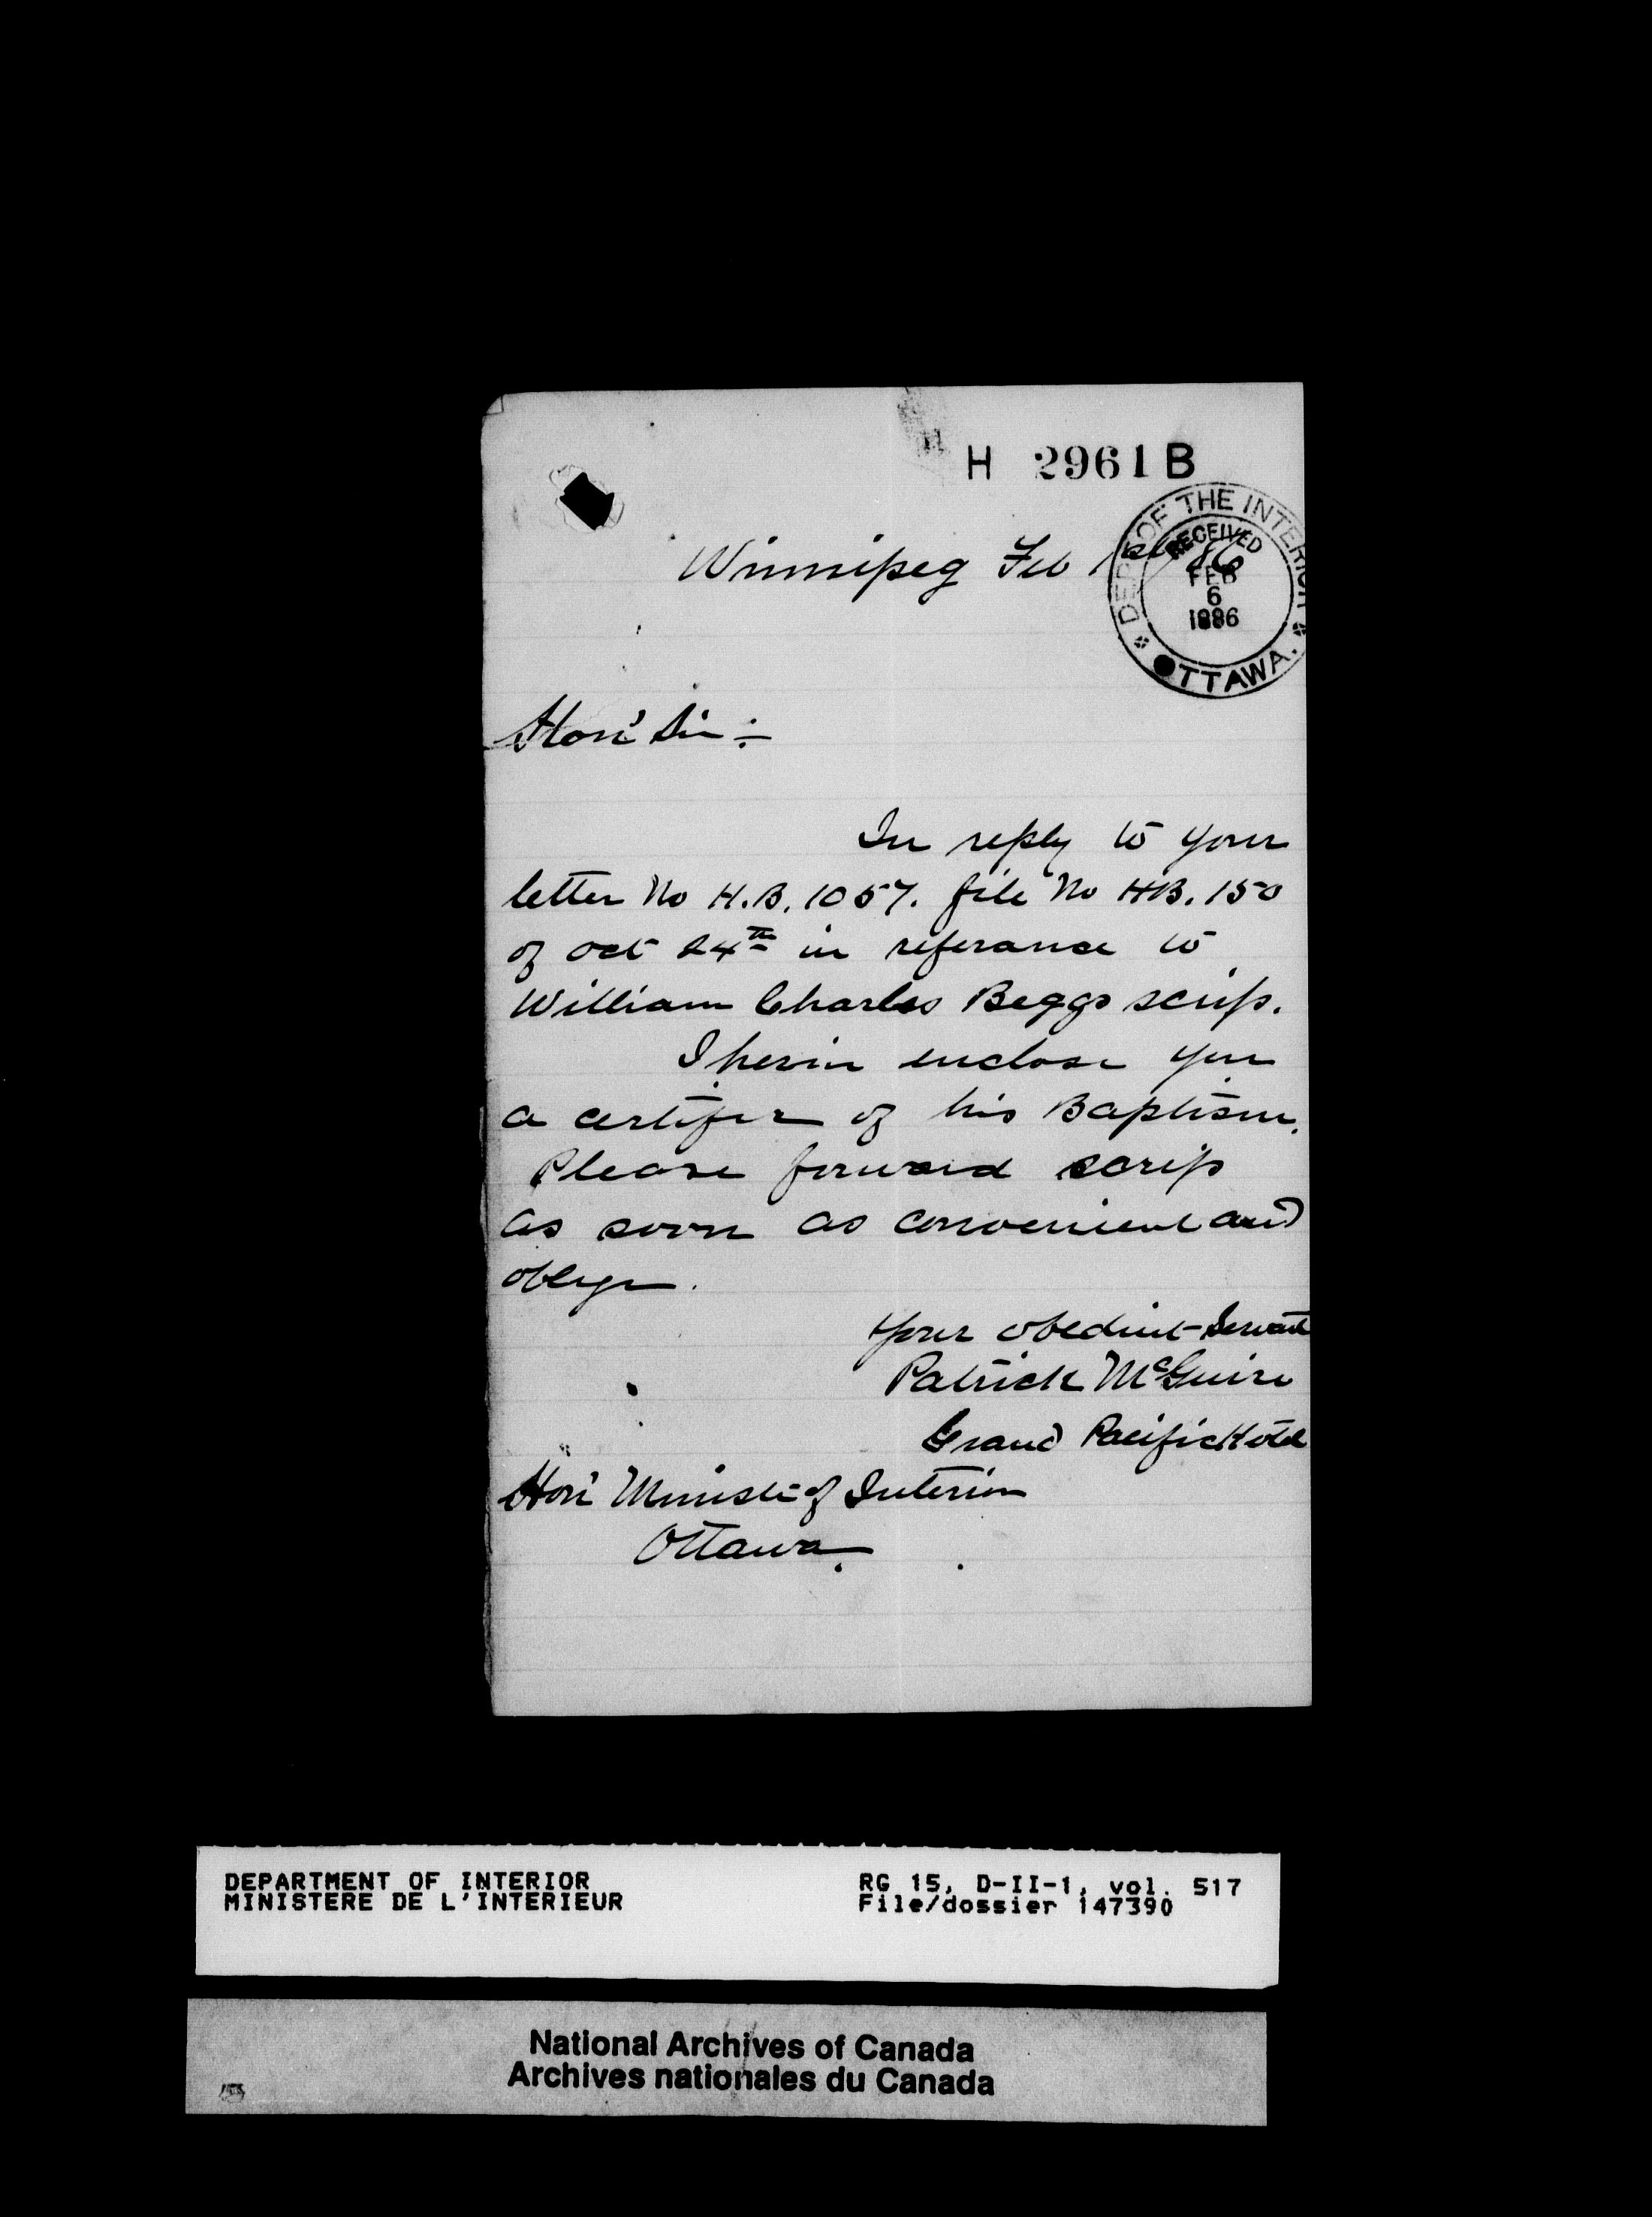 H 2961 B
DEPT OF THE INTERIOR
RECEIVED
FEB
6
1886
OTTAWA.
Winnipeg Feb 1st 86
Hon' Sir :-
In reply to your
letter No H.B. 1057. file No HB. 150
of oct 24th in referance to
William Charles Beggs scrip.
I herin enclose you
a certifer of his Baptism.
Please forward scrip
as soon as convenient and
oblige.
Your obedient Servant
Patrick McGuire
Grand Pacific Hotel
Hon' Minister of Interior
Ottawa.
DEPARTMENT OF INTERIOR
MINISTERE DE L'INTERIEUR
RG 15, D-II-1, vol. 517
File/dossier 147390
National Archives of Canada
Archives nationales du Canada